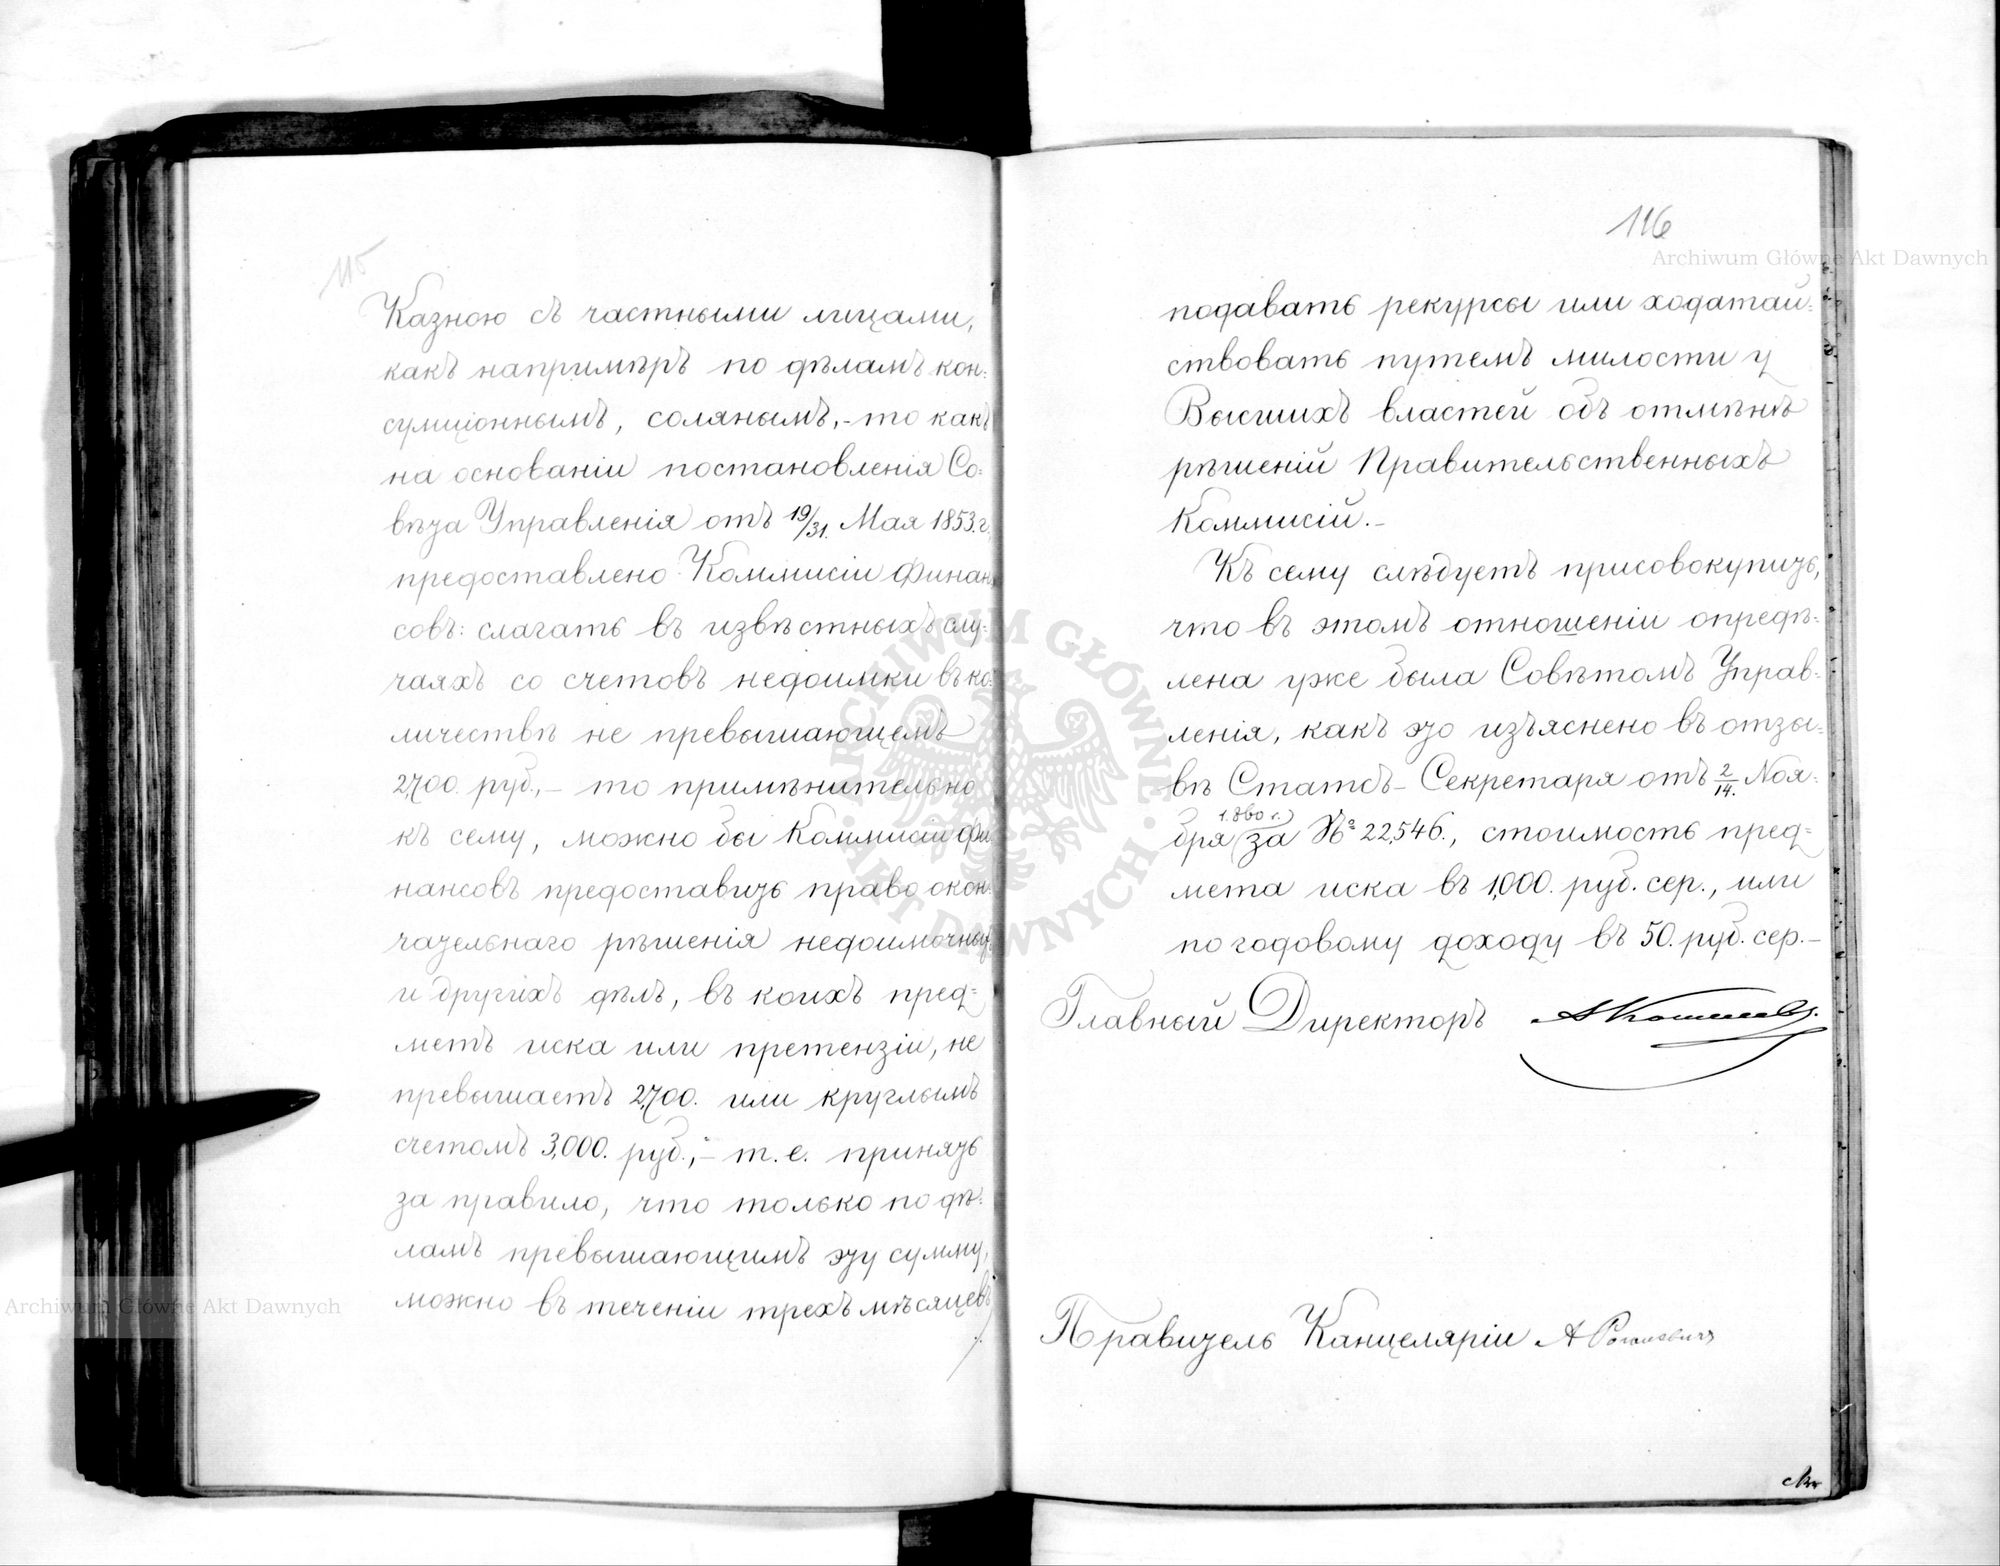 115
Казною съ частными лицами,
какъ напримѣръ по дѣламъ кон=
сумціоннымъ, солянымъ,- то какъ
на основаніи постановленія Со=
вѣта Управленія отъ 19/31. Мая 1853.г.
предоставлено Коммисіи Финан=
совъ: слагать въ извѣстныхъ слу=
чаяхъ со счетовъ недоимки въ ко=
личествѣ не превышающемъ
2,700. руб.,- то примѣнительно
къ сему, можно бы Коммисіи Фи=
нансовъ предоставить право окон=
чательнаго рѣшенія недоимочныхъ
и другихъ дѣлъ, въ коихъ пред=
метъ иска или претензіи, не
превышаетъ 2,700. или круглымъ
счетомъ 3,000. руб.,- т.е. принять
за правило, что только по дѣ=
ламъ превышающимъ эту сумму,
можно въ теченіи трехъ мѣсяцевъ
116
подавать рекурсы или ходатай=
ствовать путемъ милости у
Высшихъ властей объ отмѣнѣ
рѣшеній Правительственныхъ
Коммисій.-
Къ сему слѣдуетъ присовокупить,
что въ этомъ отношеніи опредѣ=
лена уже была Совѣтомъ Управ=
ленія, какъ это изъяснено въ отзы=
вѣ Статсъ-Секретаря отъ 2/14. Ноя=
1.860 г.
бря за № 22,546., стоимость пред=
мета иска въ 1,000. руб. сер., или
по годовому доходу въ 50. руб. сер.-
Главный Директоръ АКошелевъ.
Правитель Канцеляріи А
Archiwum Główne Akt Dawnych
Archiwum Główne Akt Dawnych
ARCHIWUM GŁÓWNE AKT DAWNYCH